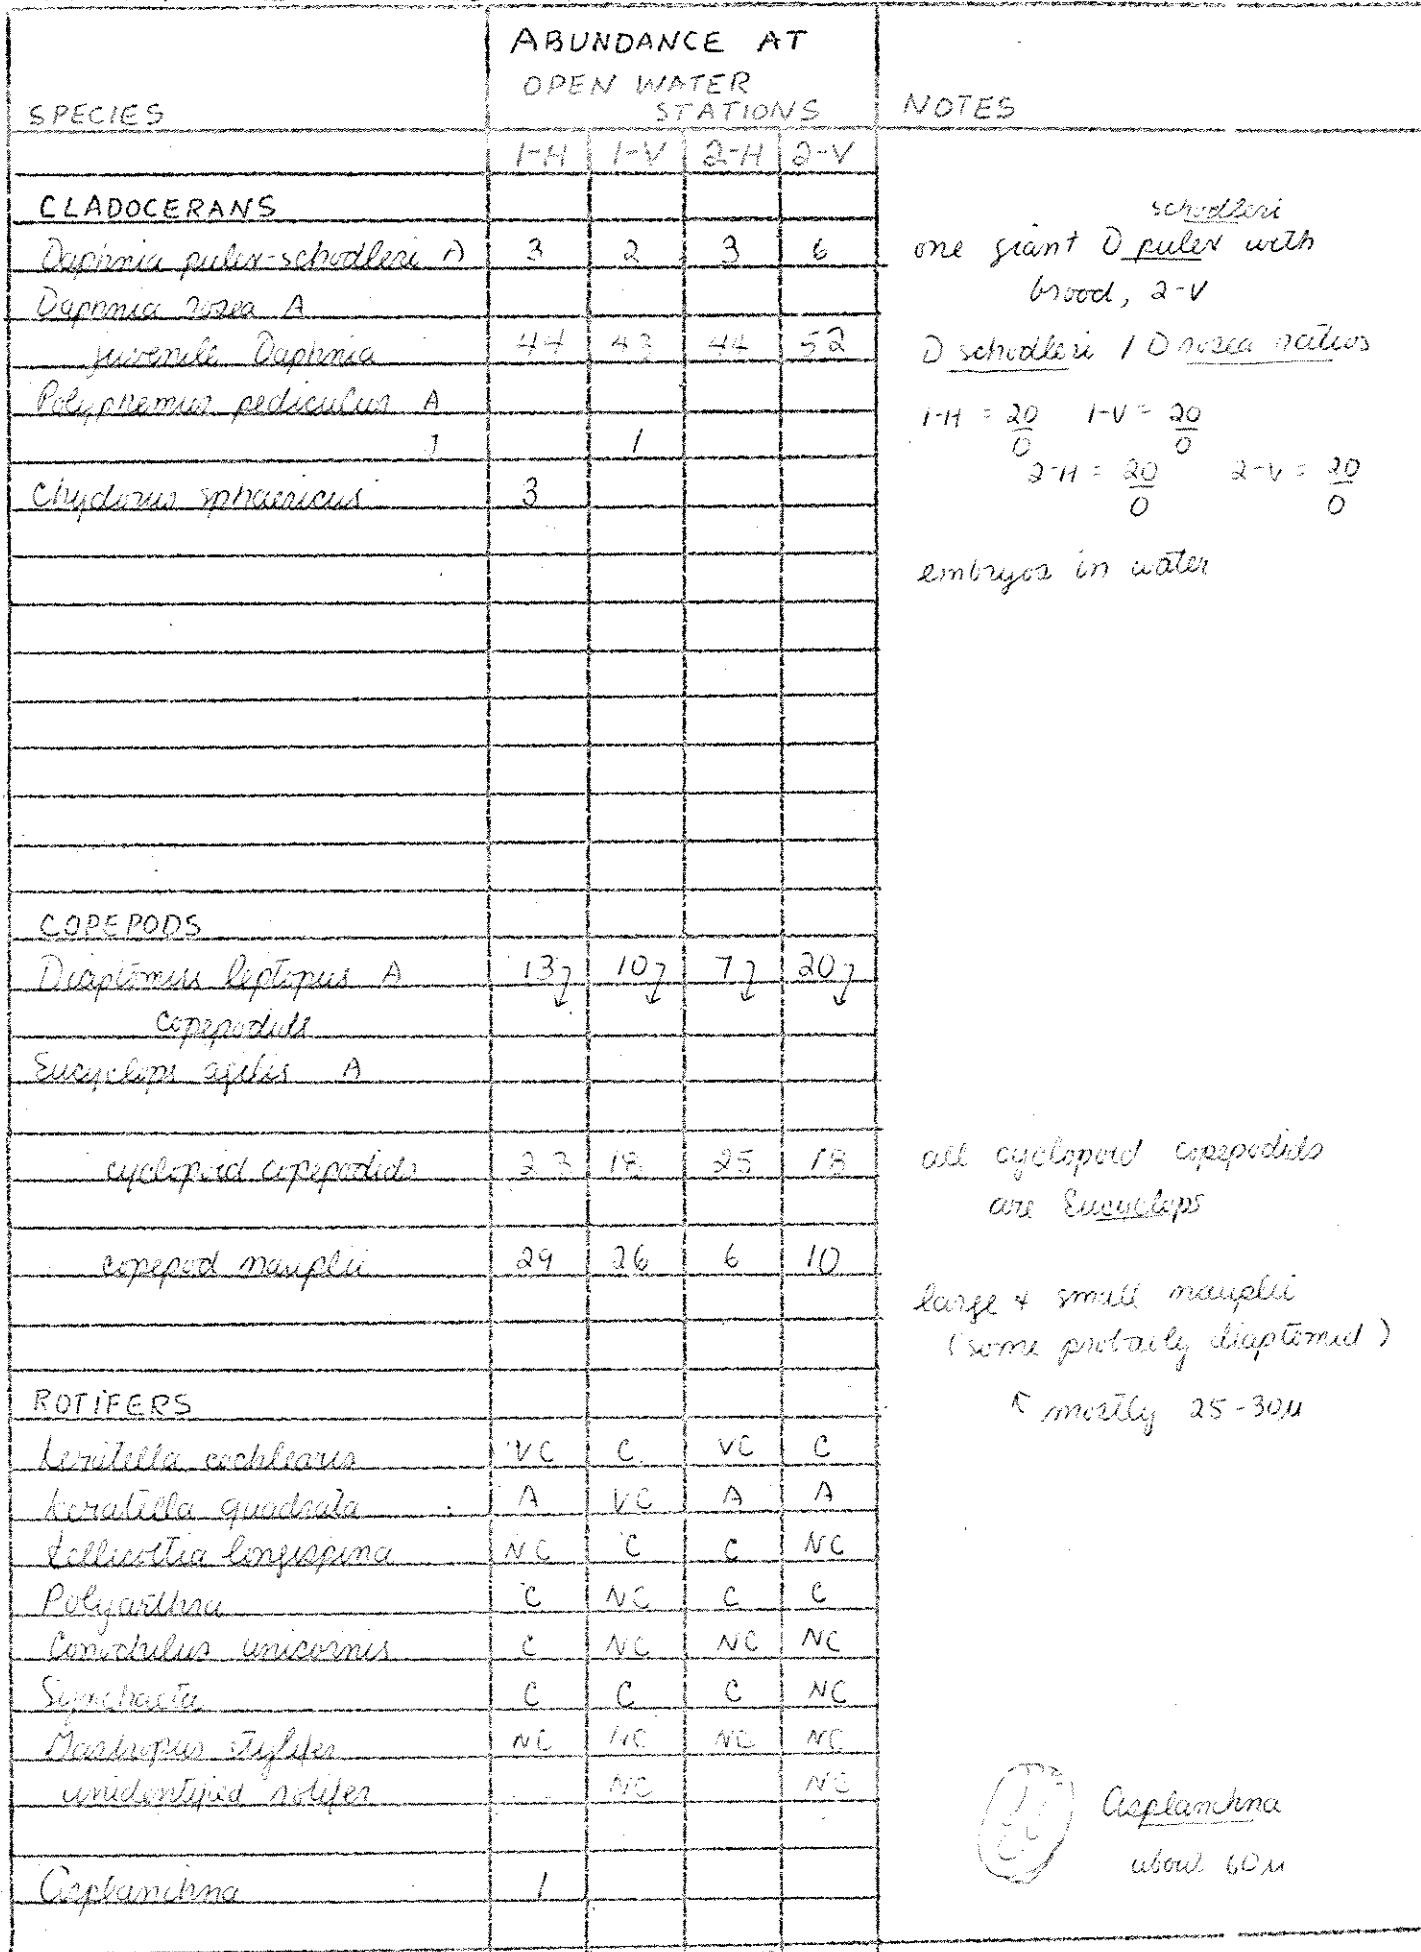 ABUNDANCE AT
OPEN WATER
SPECIES STATIONS NOTES
1-H 1-V 2-H 2-V
CLADOCERANS
schodleri
Daphnia pulex-schodleri A 3 2 3 6 one giant D pulex with
Daphnia rosea A brood, 2-V
juvenile Daphnia 44 43 44 52 D schodleri / D rosea ratios
Polyphemus pediculus A
1-H = 20/0 1-V = 20/0
J 1
2-H = 20/0 2-V = 20/0
Chydorus sphaericus 3
embryos in water
COPEPODS
Diaptomus leptopus A 13 10 7 20
copepodids
Eucyclops agilis A
cyclopoid copepodids 23 18 25 18 all cyclopoid copepodids
are Eucyclops
copepod nauplii 29 26 6 10
large + small nauplii
(some probably diaptomid)
ROTIFERS ↖ mostly 25-30µ
Keratella cochlearis VC C VC C
Keratella quadrata A VC A A
Kellicottia longispina NC C C NC
Polyarthra C NC C C
Conochilus unicornis C NC NC NC
Synchaeta C C C NC
Gastropus stylifer NC NC NC NC
unidentified rotifer NC NC
Asplanchna
about 60µ
Asplanchna 1